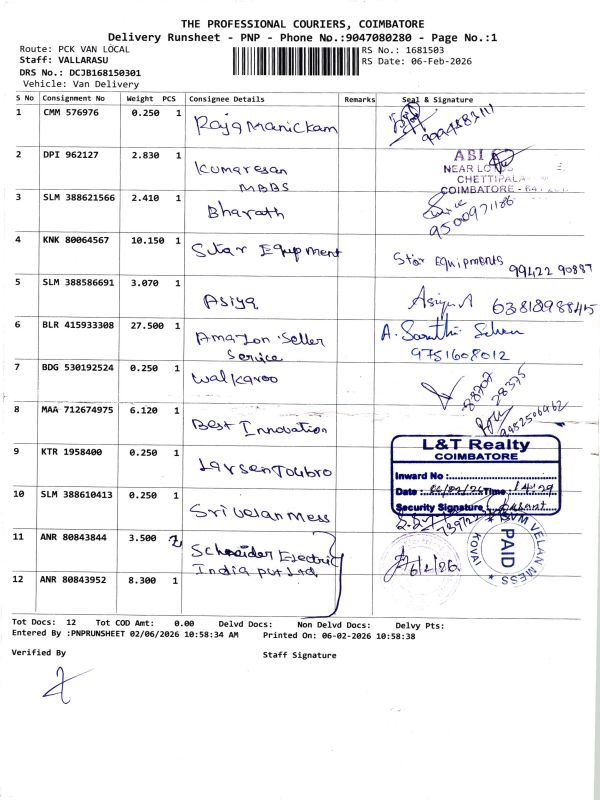 THE PROFESSIONAL COURIERS, COIMBATORE
Delivery Runsheet - PNP - Phone No.:9047080280 - Page No.:1
Route: PCK VAN LOCAL
RS No.: 1681503
Staff: VALLARASU
RS Date: 06-Feb-2026
DRS No.: DCJB168150301
Vehicle: Van Delivery
S No Consignment No Weight PCS Consignee Details Remarks Seal & Signature
1 CMM 576976 0.250 1 Rajamanickam
2 DPI 962127 2.830 1 Kumaresan
MBBS
ABI
NEAR
CHETTIPALA
COIMBATORE - 641
3 SLM 388621566 2.410 1 Bharath
9500971186
4 KNK 80064567 10.150 1 Star Equpment
Star Equipments 99422 90887
5 SLM 388586691 3.070 1 Asiya
Asiya.A 6381898845
6 BLR 415933308 27.500 1 Amazon Seller
Service
9751608012
7 BDG 530192524 0.250 1 Walkaroo
88707
28375
8 MAA 712674975 6.120 1 Best Innovation
9952506962
9 KTR 1958400 0.250 1 Larsen Toubro
L&T Realty
COIMBATORE
Inward No :
Date : 06/02/26 Time : 14:29
Security Signature
10 SLM 388610413 0.250 1 Sri Velan Mess
SIVM VELAN MESS
PAID
KOVAI
11 ANR 80843844 3.500 2 Schneider Electric
India Pvt Ltd
6/2/26
12 ANR 80843952 8.300 1
Tot Docs: 12 Tot COD Amt: 0.00 Delvd Docs: Non Delvd Docs: Delvy Pts:
Entered By :PNPRUNSHEET 02/06/2026 10:58:34 AM Printed On: 06-02-2026 10:58:38
Verified By
Staff Signature